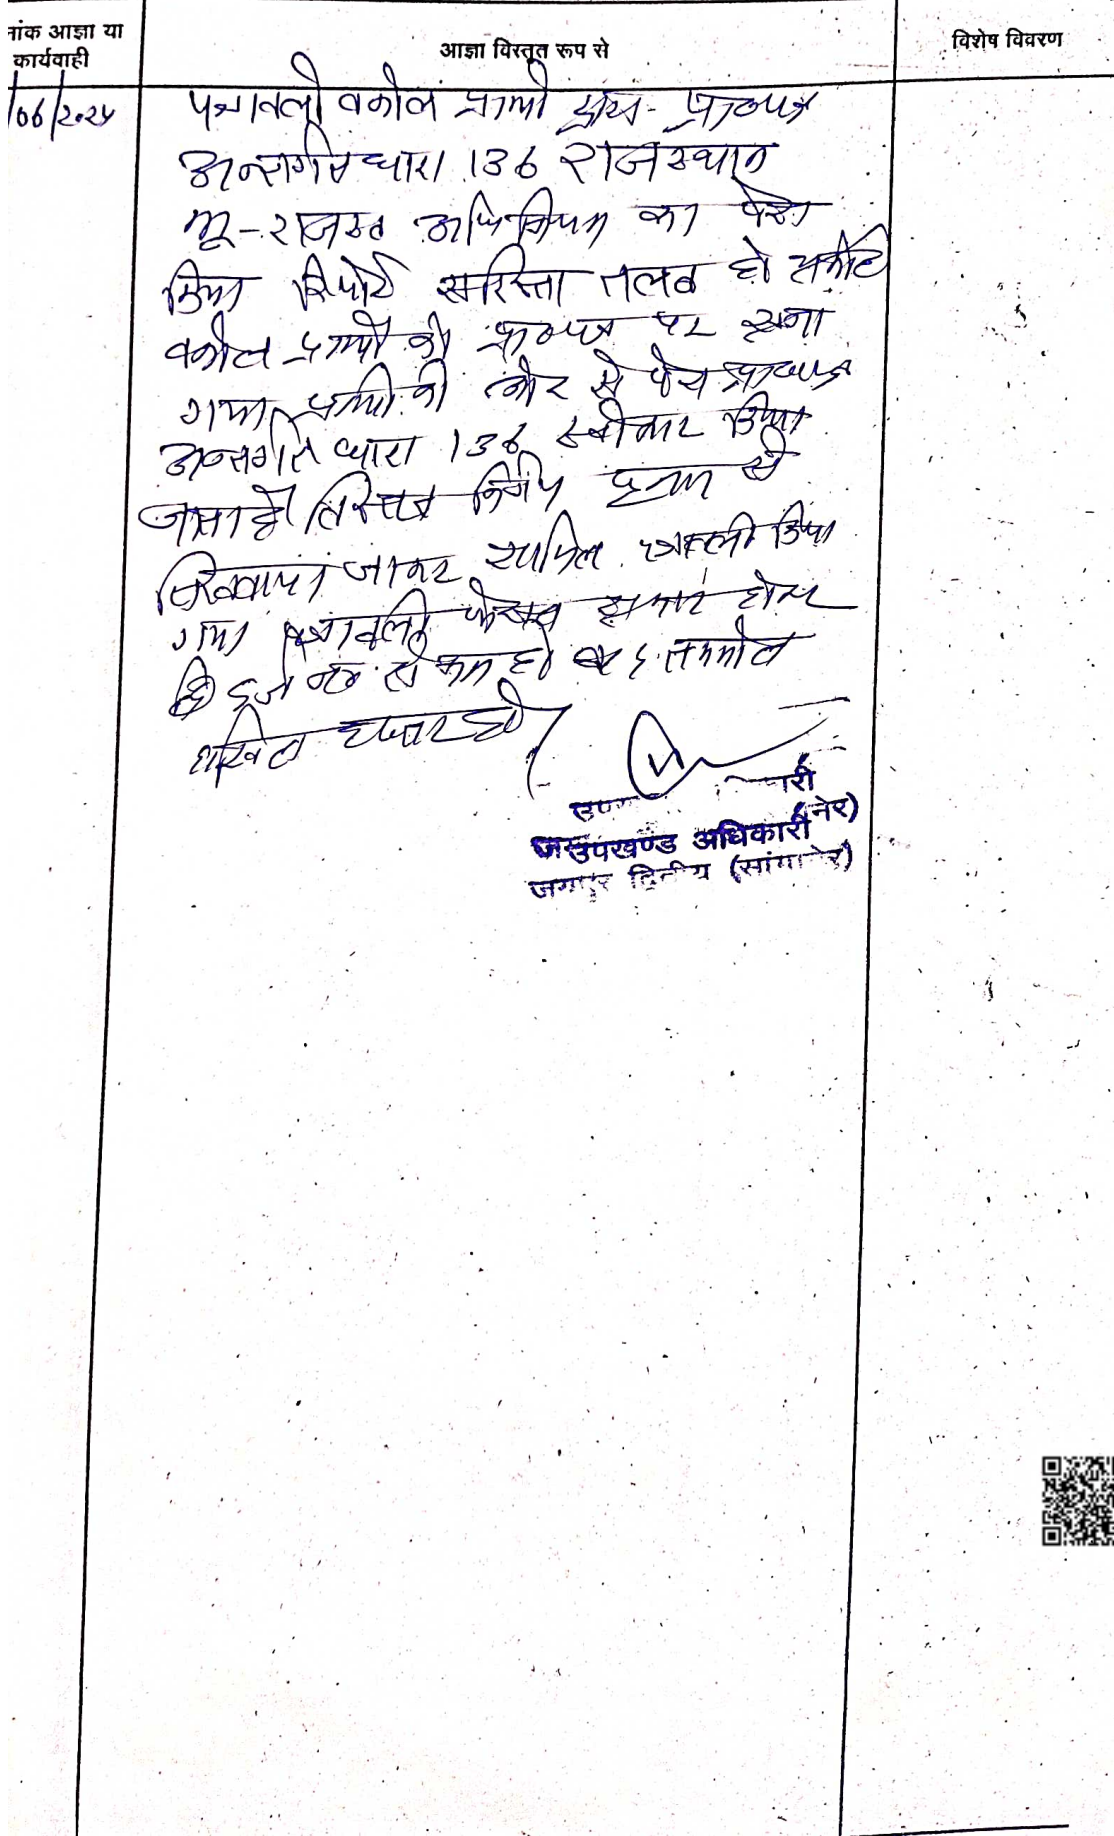 नांक आज्ञा या
कार्यवाही
आज्ञा विस्तृत रूप से
विशेष विवरण
/06/2024
पत्रावली वकील प्रार्थी द्वारा प्रा०पत्र
अन्तर्गत धारा 136 राजस्थान
भू-राजस्व अधिनियम का पेश
किया रिपोर्ट सरिस्ता तलब हो
वकील प्रार्थी को प्रा०पत्र पर सुना
गया प्रार्थी की ओर से पेश प्रा०पत्र
अन्तर्गत धारा 136 स्वीकार किया
जाता है विस्तृत निर्णय पृथक से
लिखवाया जाकर शामिल पत्रावली किया
गया पत्रावली फैसल शुमार होकर
दर्ज नं० से कम हो बाद तकमील
दाखिल दफ्तर हो
उपखण्ड अधिकारी
जयपुर द्वितीय (सांगानेर)